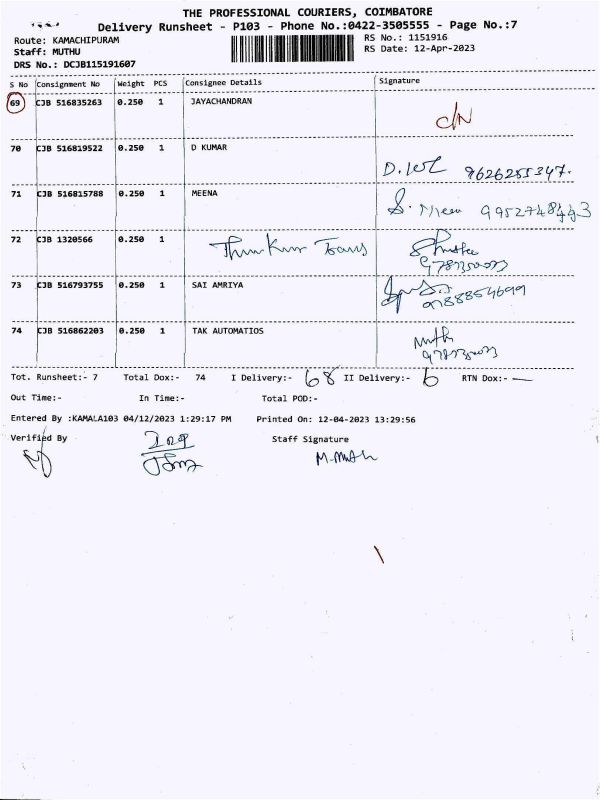 THE PROFESSIONAL COURIERS, COIMBATORE
Delivery Runsheet - P103 - Phone No.:0422-3505555 - Page No.:7
Route: KAMACHIPURAM
RS No.: 1151916
Staff: MUTHU
RS Date: 12-Apr-2023
DRS No.: DCJB115191607
S No Consignment No Weight PCS Consignee Details Signature
69 CJB 516835263 0.250 1 JAYACHANDRAN
C/N
70 CJB 516819522 0.250 1 D KUMAR
9626255347.
71 CJB 516815788 0.250 1 MEENA
S. 9952748443
72 CJB 1320566 0.250 1
73 CJB 516793755 0.250 1 SAI AMRIYA
74 CJB 516862203 0.250 1 TAK AUTOMATIOS
Tot. Runsheet:- 7 Total Dox:- 74 I Delivery:- 68 II Delivery:- 6 RTN Dox:- —
Out Time:- In Time:- Total POD:-
Entered By :KAMALA103 04/12/2023 1:29:17 PM Printed On: 12-04-2023 13:29:56
Verified By Staff Signature
M. Muth